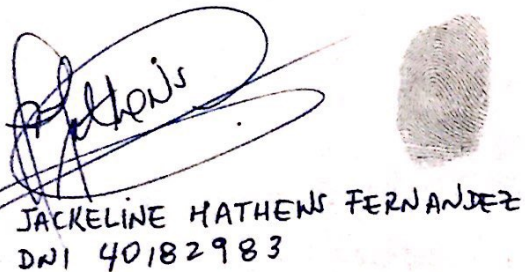 JMathews
JACKELINE MATHEWS FERNANDEZ
DNI 40182983